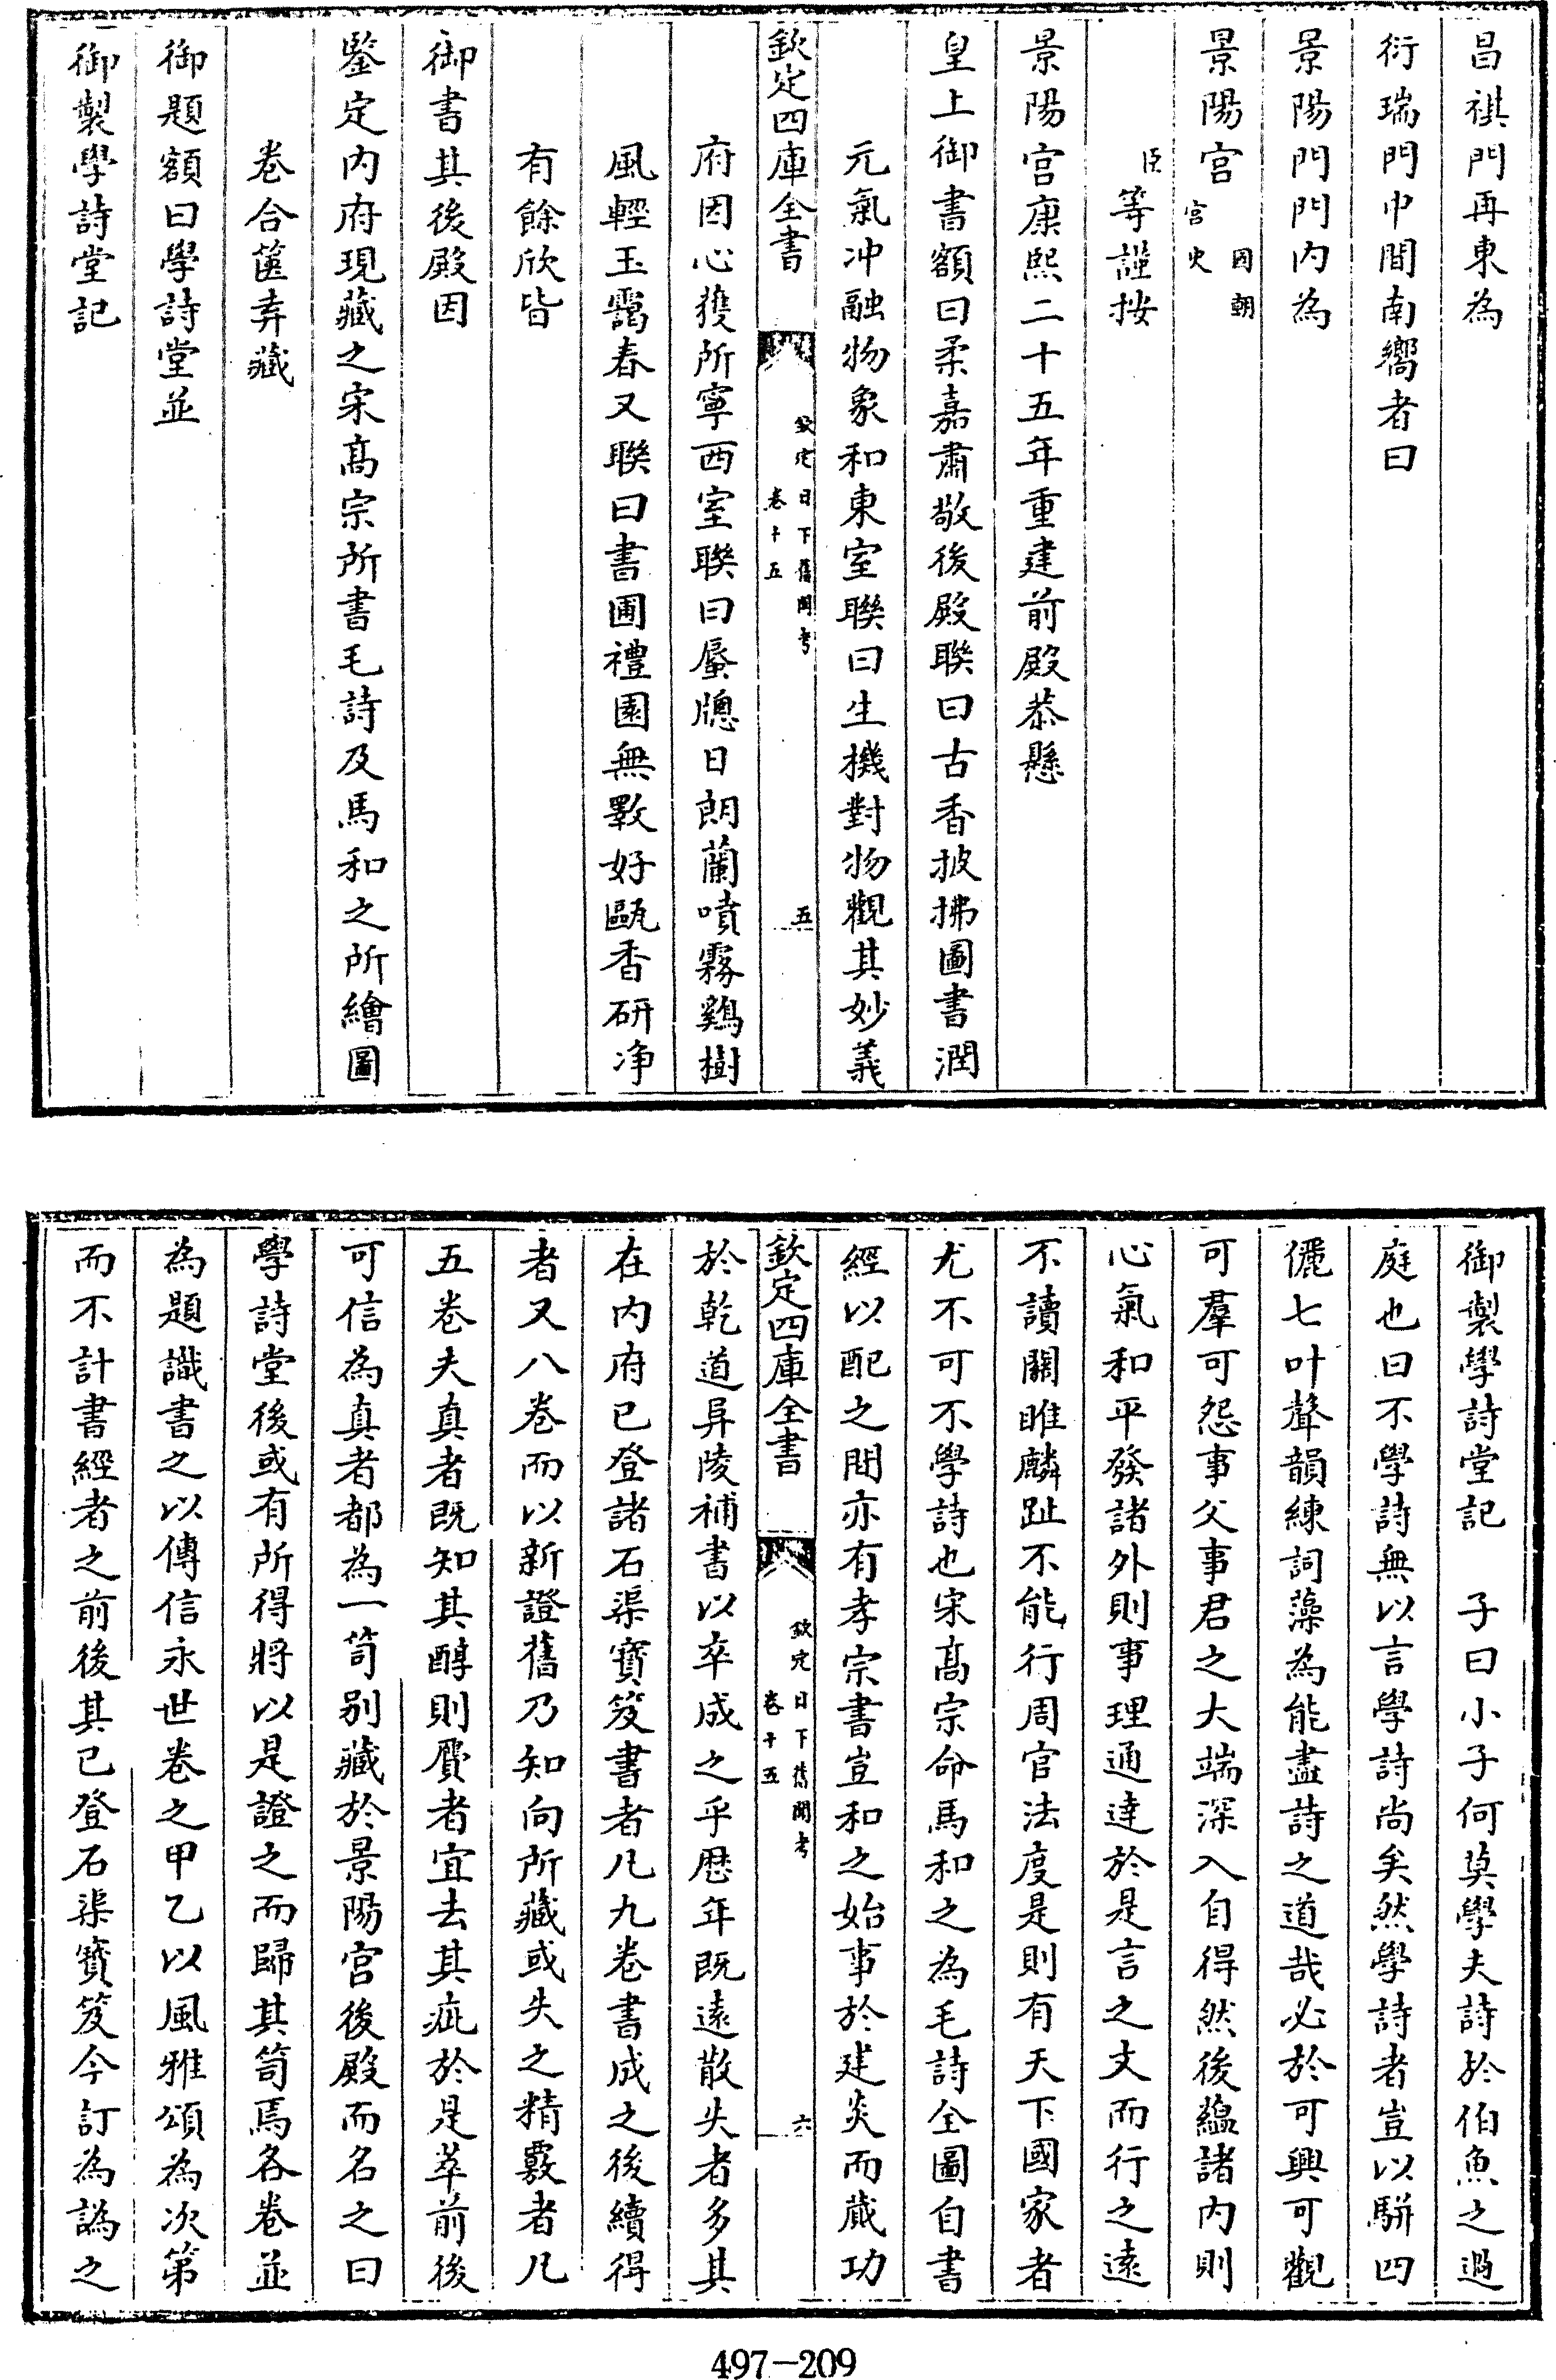 昌祺門再東為
衍瑞門中間南嚮者曰
景陽門門内為
景陽宫國朝宫史
臣等謹按
景陽宫康熙二十五年重建前殿恭懸
皇上御書額曰柔嘉肅敬後殿聯曰古香披拂圖書潤
元氣冲融物象和東室聯曰生機對物觀其妙義
欽定四庫全書
欽定日下舊聞考
卷十五
五
府因心獲所寧西室聯曰蜃牕日朗蘭噴霧鷄樹
風輕玉靄春又聯曰書圃禮園無斁好甌香研净
有餘欣皆
御書其後殿因
鑒定内府現藏之宋髙宗所書毛詩及馬和之所繪圖
卷合篋弆藏
御題額曰學詩堂並
御製學詩堂記
御製學詩堂記　子曰小子何莫學夫詩於伯魚之過
庭也曰不學詩無以言學詩尚矣然學詩者豈以駢四
儷七叶聲韻練詞藻為能盡詩之道哉必於可興可觀
可羣可怨事父事君之大端深入自得然後藴諸内則
心氣和平發諸外則事理通達於是言之文而行之逺
不讀關雎麟趾不能行周官法度是則有天下國家者
尤不可不學詩也宋髙宗命馬和之為毛詩全圖自書
經以配之間亦有孝宗書豈和之始事於建炎而蕆功
欽定四庫全書
欽定日下舊聞考
卷十五
六
於乾道异陵補書以卒成之乎歴年既逺散失者多其
在内府已登諸石渠寶笈書者凡九卷書成之後續得
者又八卷而以新證舊乃知向所藏或失之精覈者凡
五卷夫真者既知其醇則贋者宜去其疵於是萃前後
可信為真者都為一笥别藏於景陽宫後殿而名之曰
學詩堂後或有所得將以是證之而歸其笥焉各卷並
為題識書之以傳信永世卷之甲乙以風雅頌為次第
而不計書經者之前後其已登石渠寳笈今訂為譌之
497-209